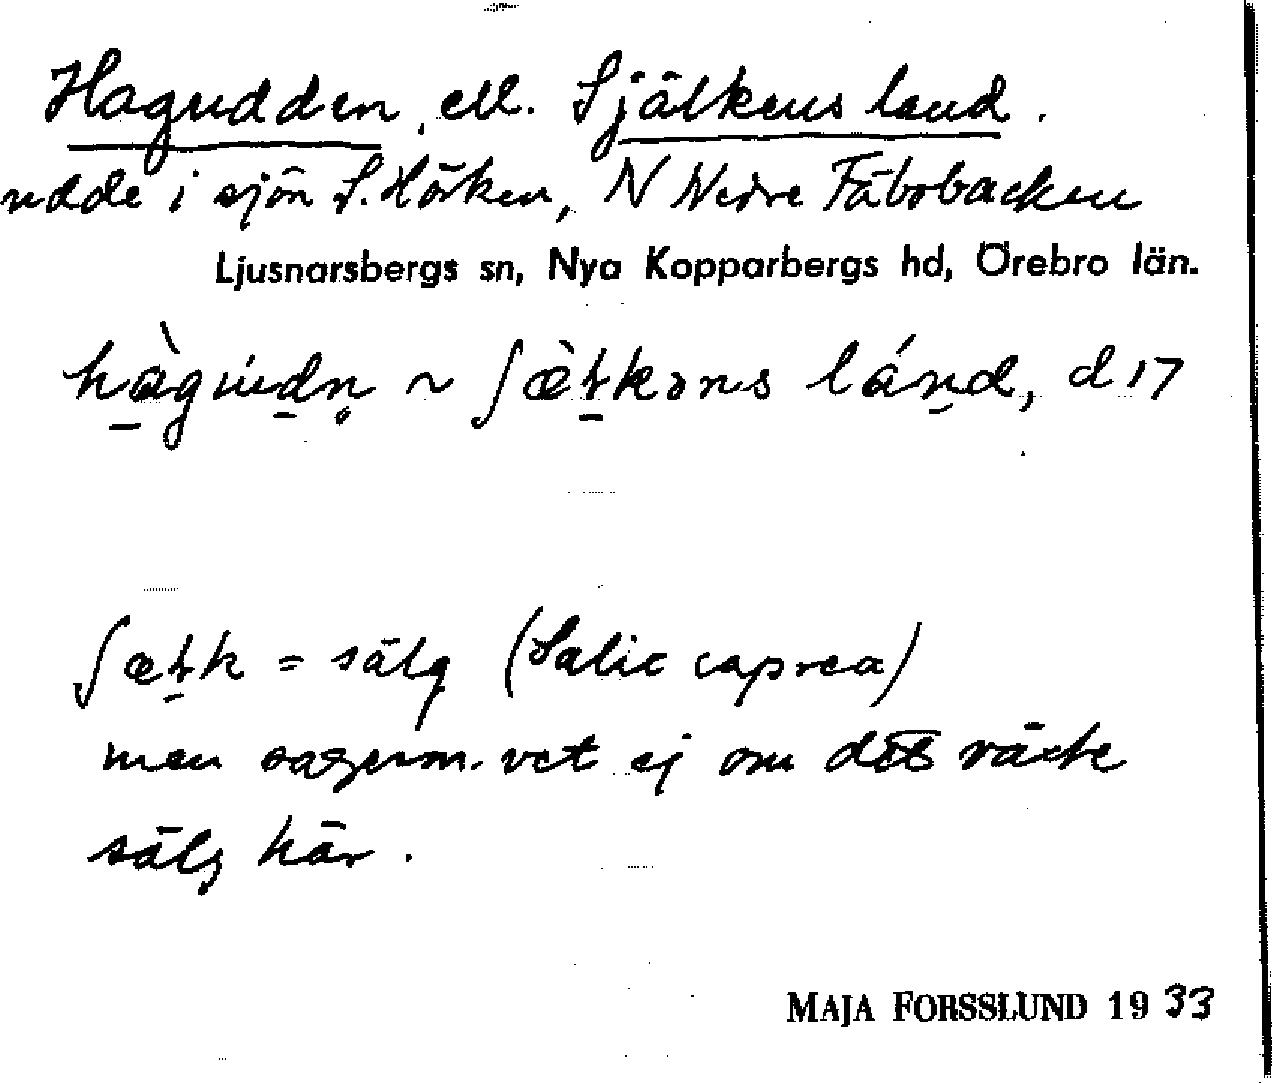 Hagudden, ell. Själkens land.
udde i sjön S. Hörken, N Nedre Fäbobacken
Ljusnarsbergs sn, Nya Kopparbergs hd, Örebro län.
hàgudn̥ ~ ʃæ̀ƚkəns lánd, d 17
ʃæƚk = sälg (Salic caprea)
men sagesm. vet ej om det växte
sälg här.
MAJA FORSSLUND 1933